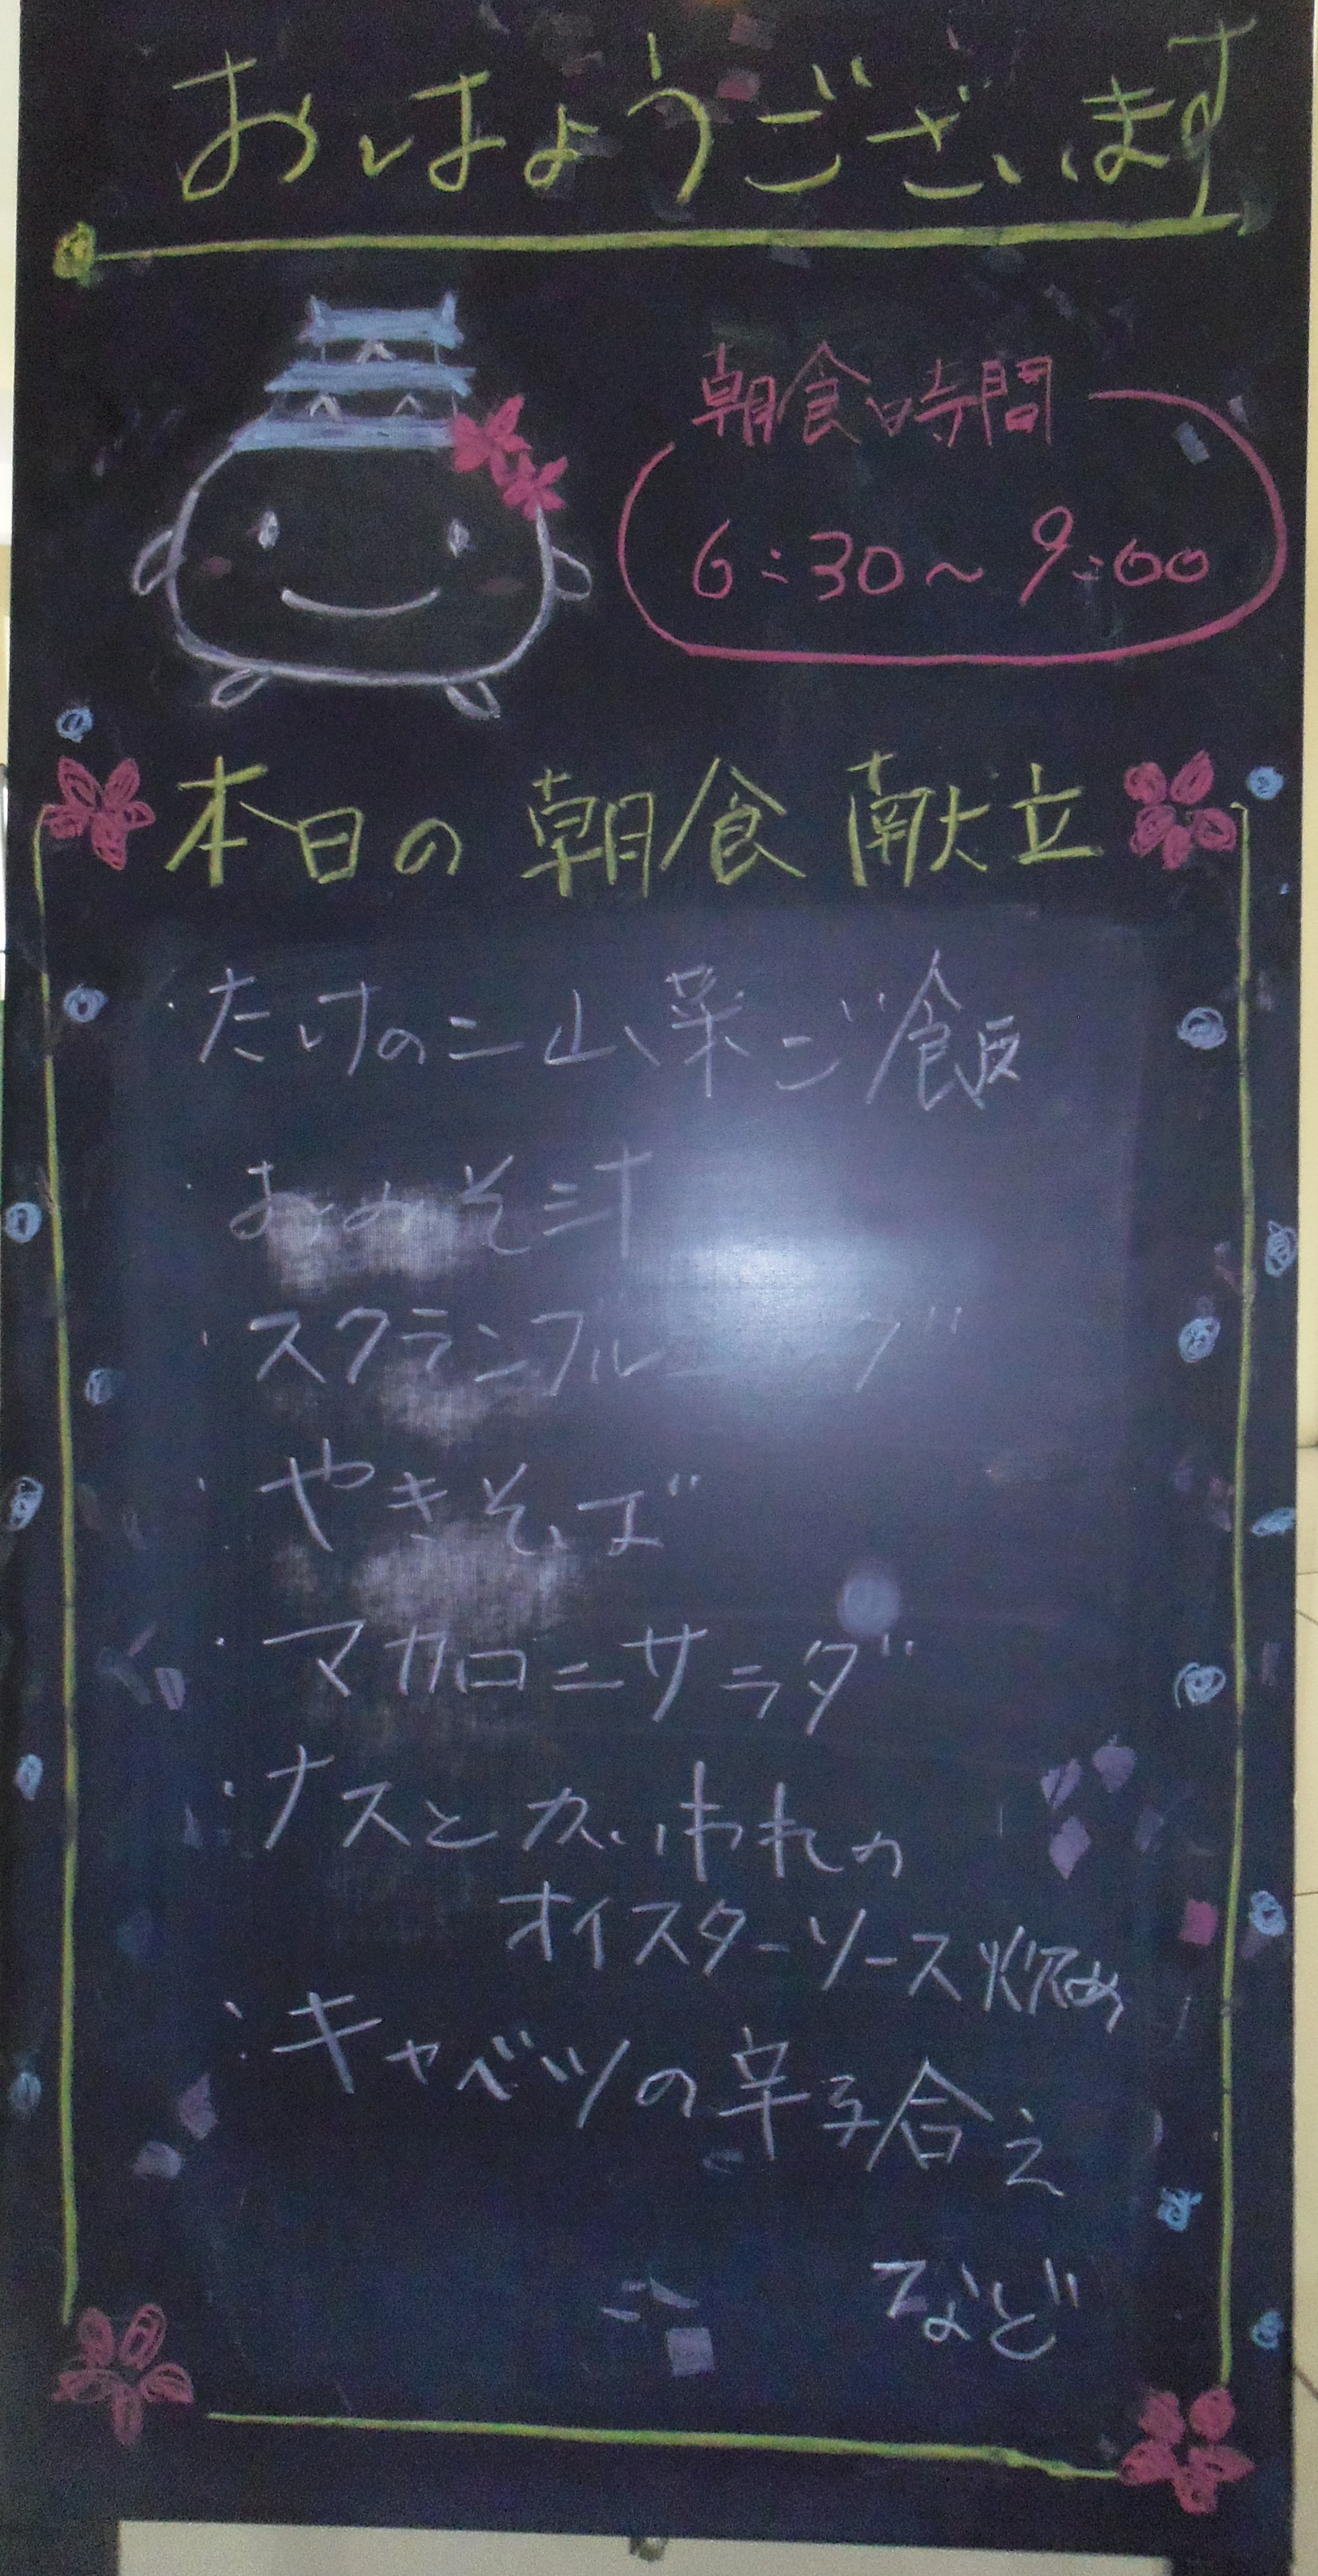 おはようございます
朝食時間
6:30〜9:00
本日の朝食献立
・たけのこ山菜ご飯
・おみそ汁
・スクランブルエッグ
・やきそば
・マカロニサラダ
・ナスとかいわれの
オイスターソース炒め
・キャベツの辛子合え
など